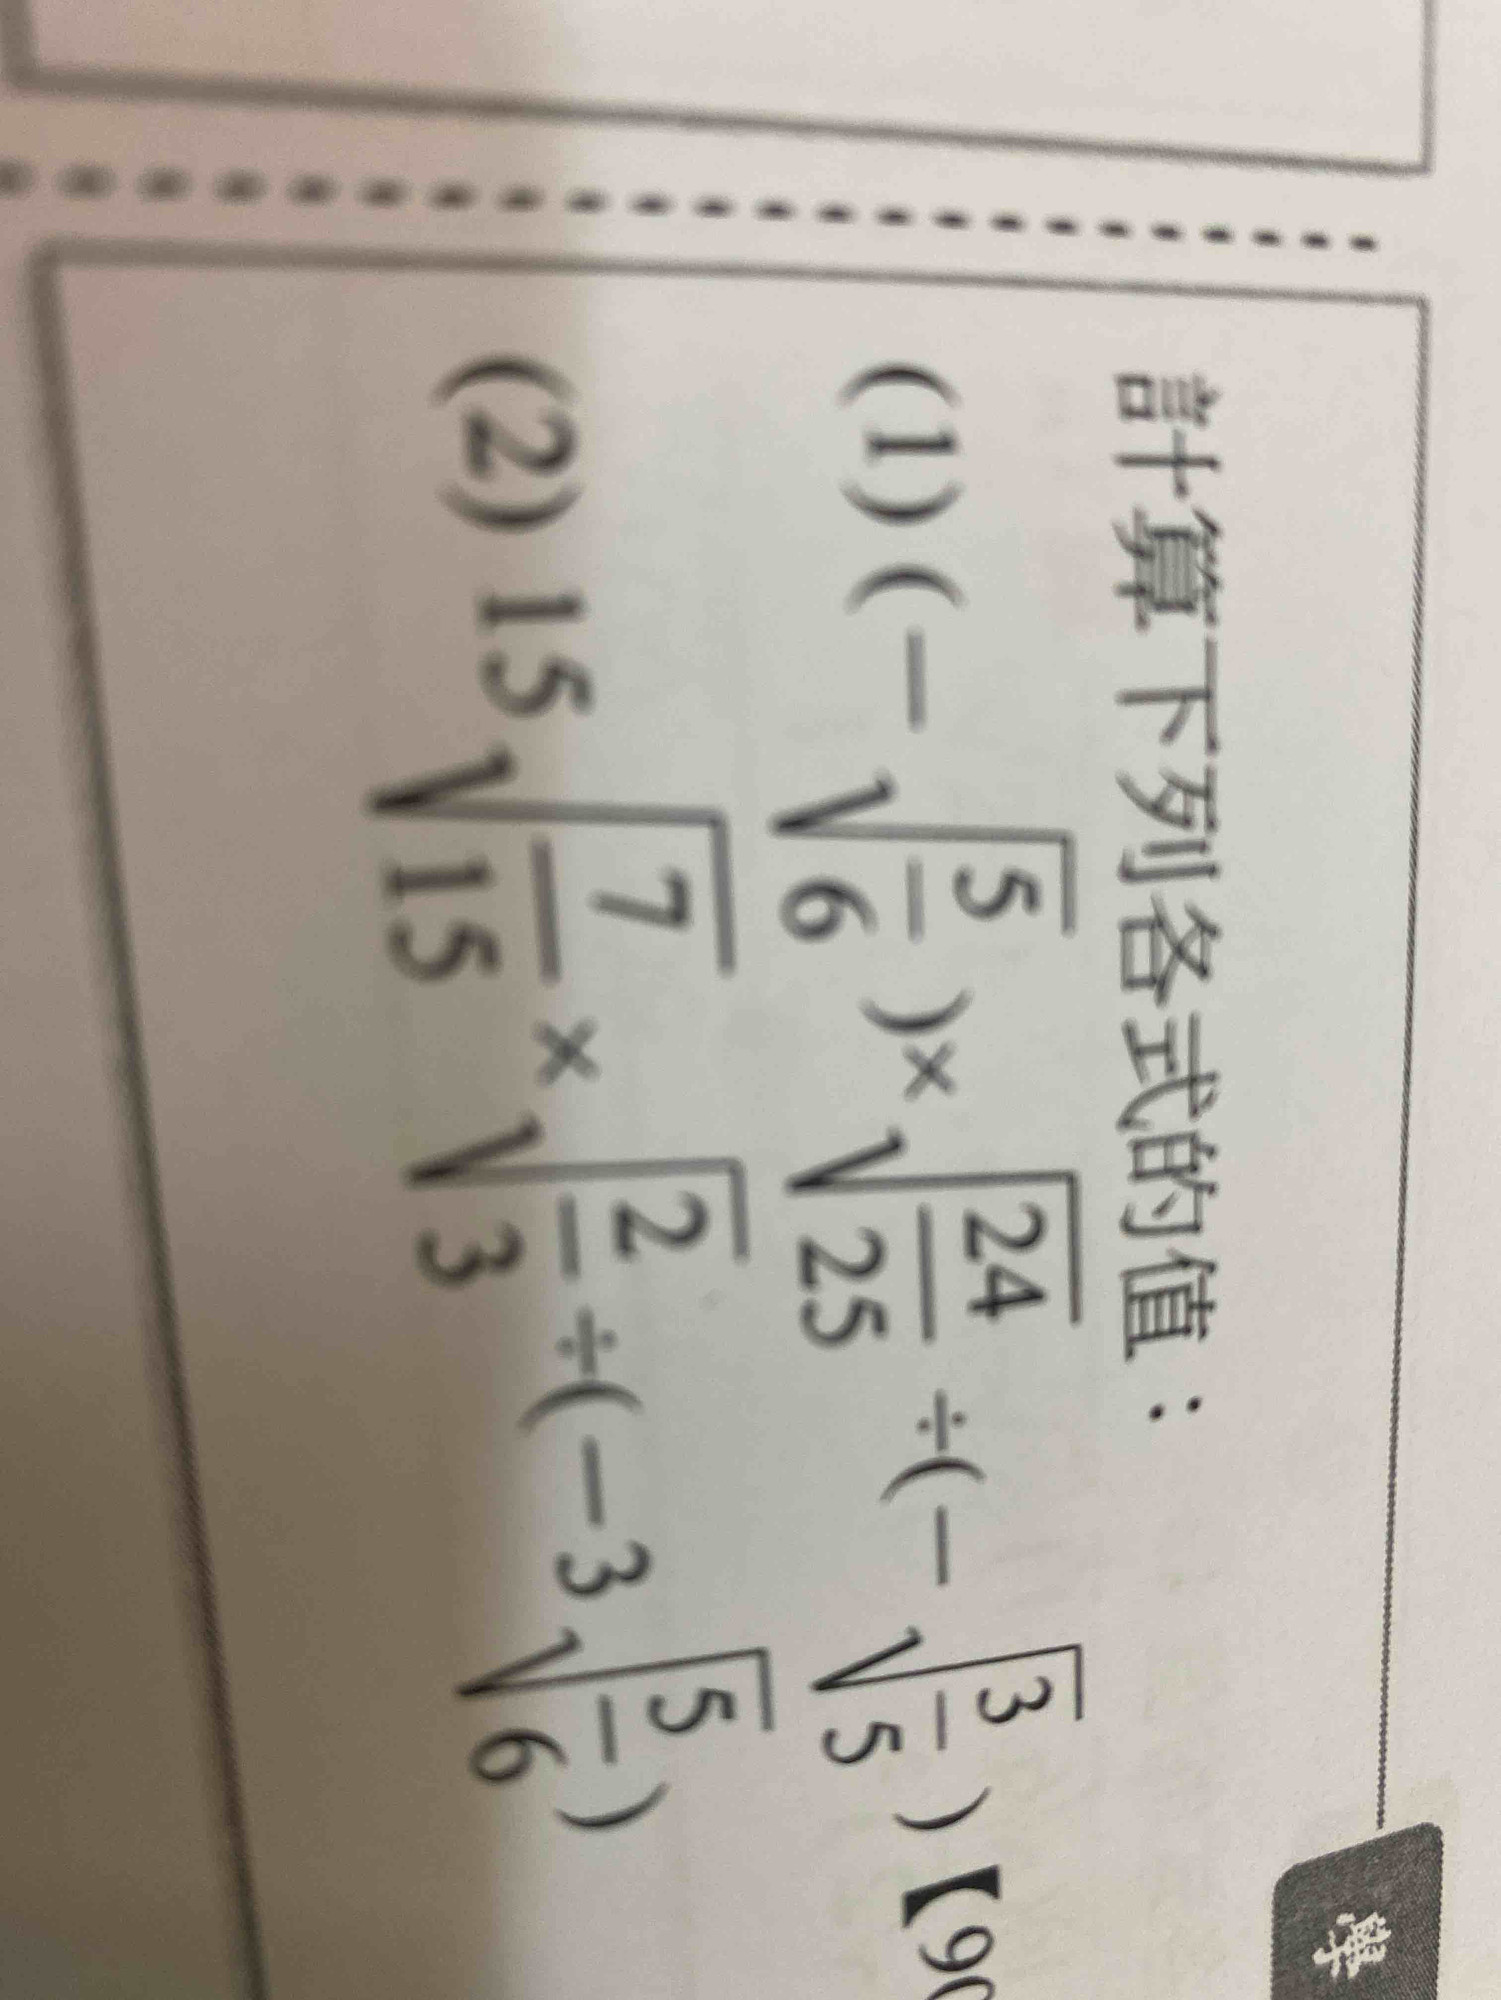 計算下列各式的值：
(1) (－√(5/6))×√(24/25)÷(－√(3/5))【90
(2) 15√(7/15)×√(2/3)÷(－3√(5/6))